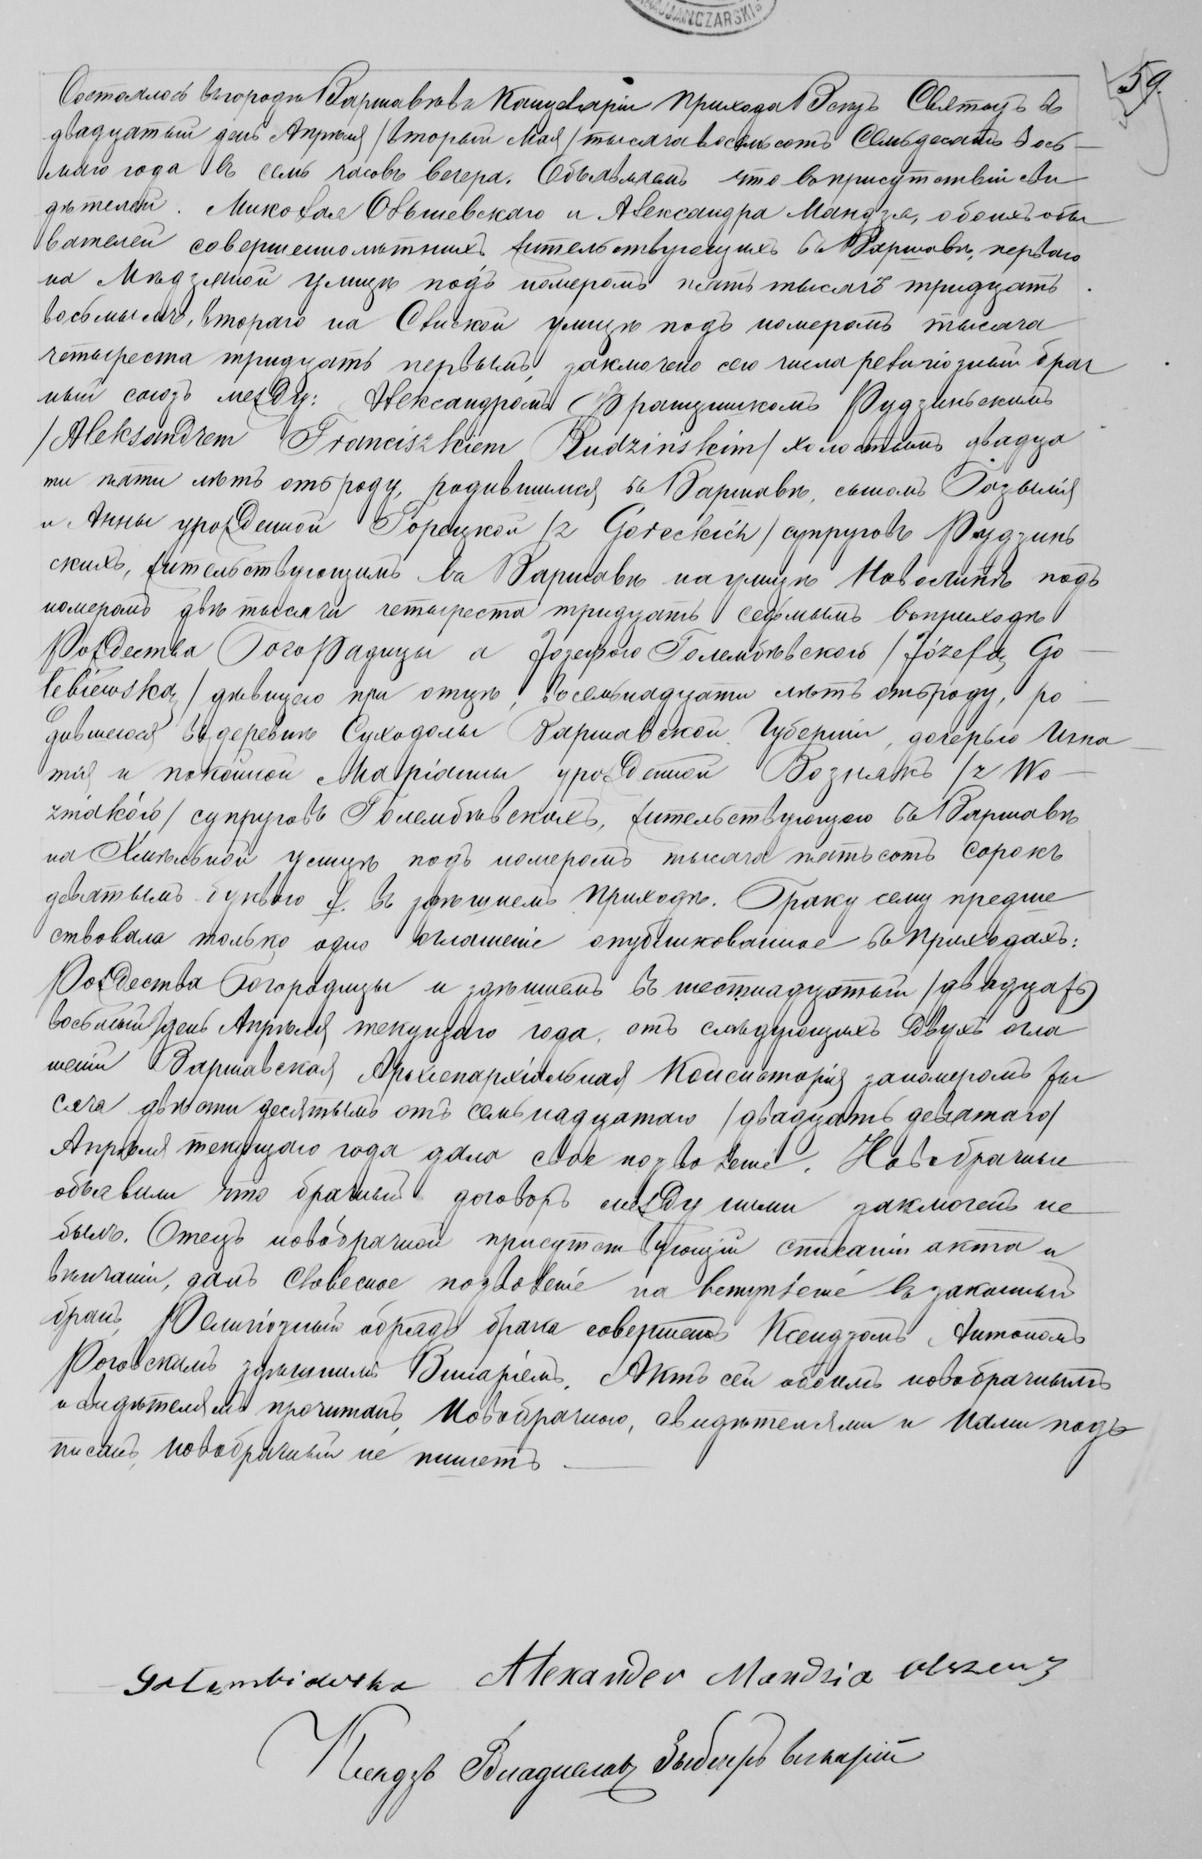 JANCZARSKI
59.
Состоялось въ городѣ Варшавѣ въ Канцеляріи Прихода Всѣхъ Святыхъ въ
двадцатый день Апрѣля /вторый Мая/ тысяча восемьсотъ Семьдесятъ Вось-
маго года въ семь часовъ вечера. Объявляемъ что въ присутствіи сви
дѣтелей. Миколая Ольшевскаго и Александра Мандзя, обоихъ обы
вателей совершеннолѣтнихъ жительствующихъ въ Варшавѣ, перваго
на Мѣдзяной улицѣ подъ номеромъ пять тысячъ тридцать
восьмымъ, втораго на Свиской улицѣ подъ номеромъ тысяча
четыреста тридцать первымъ, заключено сего числа религіозный брач
ный союзъ между: Александромъ Францишкомъ Рудзинскимъ
/Aleksandrem Franciszkiem Rudzińskim/ холостымъ двадца
ти пяти лѣтъ отъ роду, родившимся въ Варшавѣ, сыномъ Базылія
и Анны урожденной Горецкой /z Goreckich/ супруговъ Рудзин
скихъ, жительствующимъ въ Варшавѣ на улицѣ Новолипкѣ подъ
номеромъ двѣ тысячи четыреста тридцать седьмымъ въ приходѣ
Рождества Богородицы а Юзефою Голембѣвскою /Józefą Go-
łębiewską/ дѣвицею при отцѣ, восемнадцати лѣтъ отъ роду, ро-
дившеюся въ деревнѣ Суходолы Варшавской Губерніи, дочерью Игна
тія и покойной Маріанны урожденной Вознякъ /z Wo-
źniaków/ супруговъ Голембѣвскихъ, жительствующею въ Варшавѣ
на Хмѣльной улицѣ подъ номеромъ тысяча пятьсотъ сорокъ
девятымъ буквою f. въ здѣшнемъ Приходѣ. Браку сему предше
ствовала только одно оглашеніе опубликованное въ Приходахъ:
Рождества Богородицы и здѣшнемъ въ шестнадцатый /двадцать
восьмый/ день Апрѣля текущаго года, отъ слѣдующихъ двухъ огла
шеній Варшавская Архіепархіальная Консисторія за номеромъ ты
сяча двѣсти десятымъ отъ семнадцатаго /двадцать девятаго/
Апрѣля текущаго года дала свое позволеніе. Новобрачные
объявили что брачный договоръ между ними заключенъ не
былъ. Отецъ новобрачной присутствующій списанію акта и
вѣнчанію, далъ словесное позволеніе на вступленіе въ законный
бракъ. Религіозный обрядъ брака совершенъ Ксендзомъ Антономъ
Роговскимъ здѣшнимъ Викаріемъ. Актъ сей обоимъ новобрачнымъ
и свидѣтелямъ прочитанъ, Новобрачною, свидѣтелями и Нами подъ
писанъ, новобрачный не пишетъ.
Gołembiowska Alexander Mandzia Olszews
Ксендзъ Владиславъ викарій